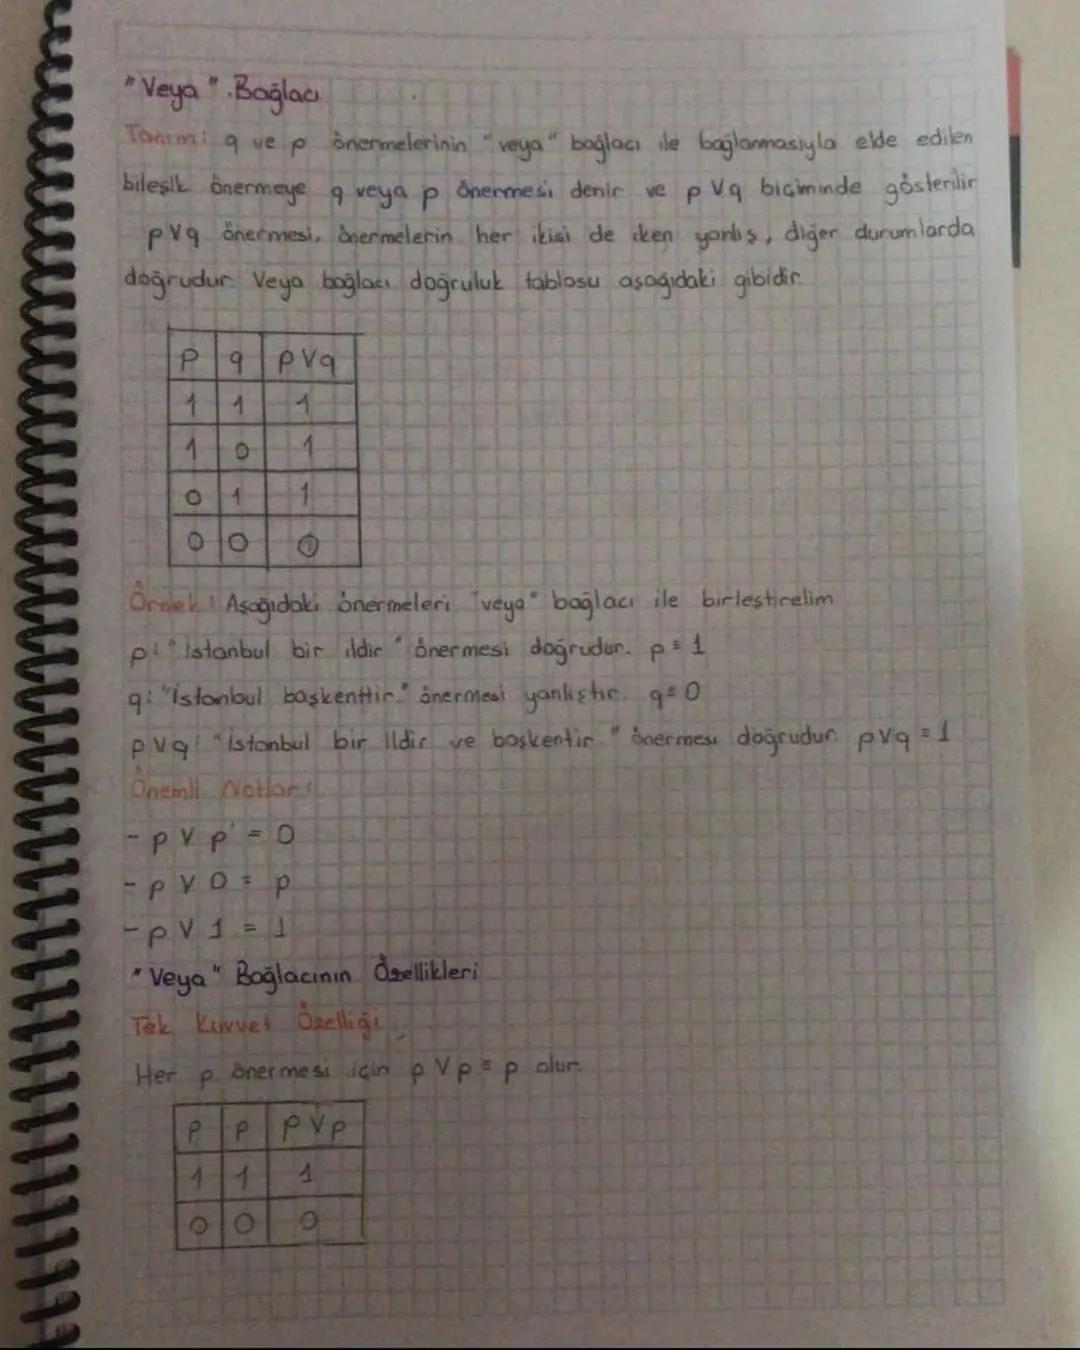 "Veya" Bağlacı
Tanım: q ve p önermelerinin "veya" bağlacı ile bağlanmasıyla elde edilen
bileşik önermeye q veya p önermesi denir ve p V q biçiminde gösterilir
p V q önermesi, önermelerin her ikisi de iken yanlış, diğer durumlarda
doğrudur. Veya bağlacı doğruluk tablosu aşağıdaki gibidir.
p q p V q
1 1 1
1 0 1
0 1 1
0 0 0
Örnek: Aşağıdaki önermeleri "veya" bağlacı ile birleştirelim
p: "İstanbul bir ildir" önermesi doğrudur. p ≡ 1
q: "İstanbul başkenttir." önermesi yanlıştır. q ≡ 0
p V q: "İstanbul bir ildir ve başkentir." önermesi doğrudur. p V q ≡ 1
Önemli Notlar:
- p V p' = 0
- p V 0 = p
- p V 1 = 1
"Veya" Bağlacının Özellikleri
Tek Kuvvet Özelliği
Her p önermesi için p V p ≡ p olur.
p p p V p
1 1 1
0 0 0